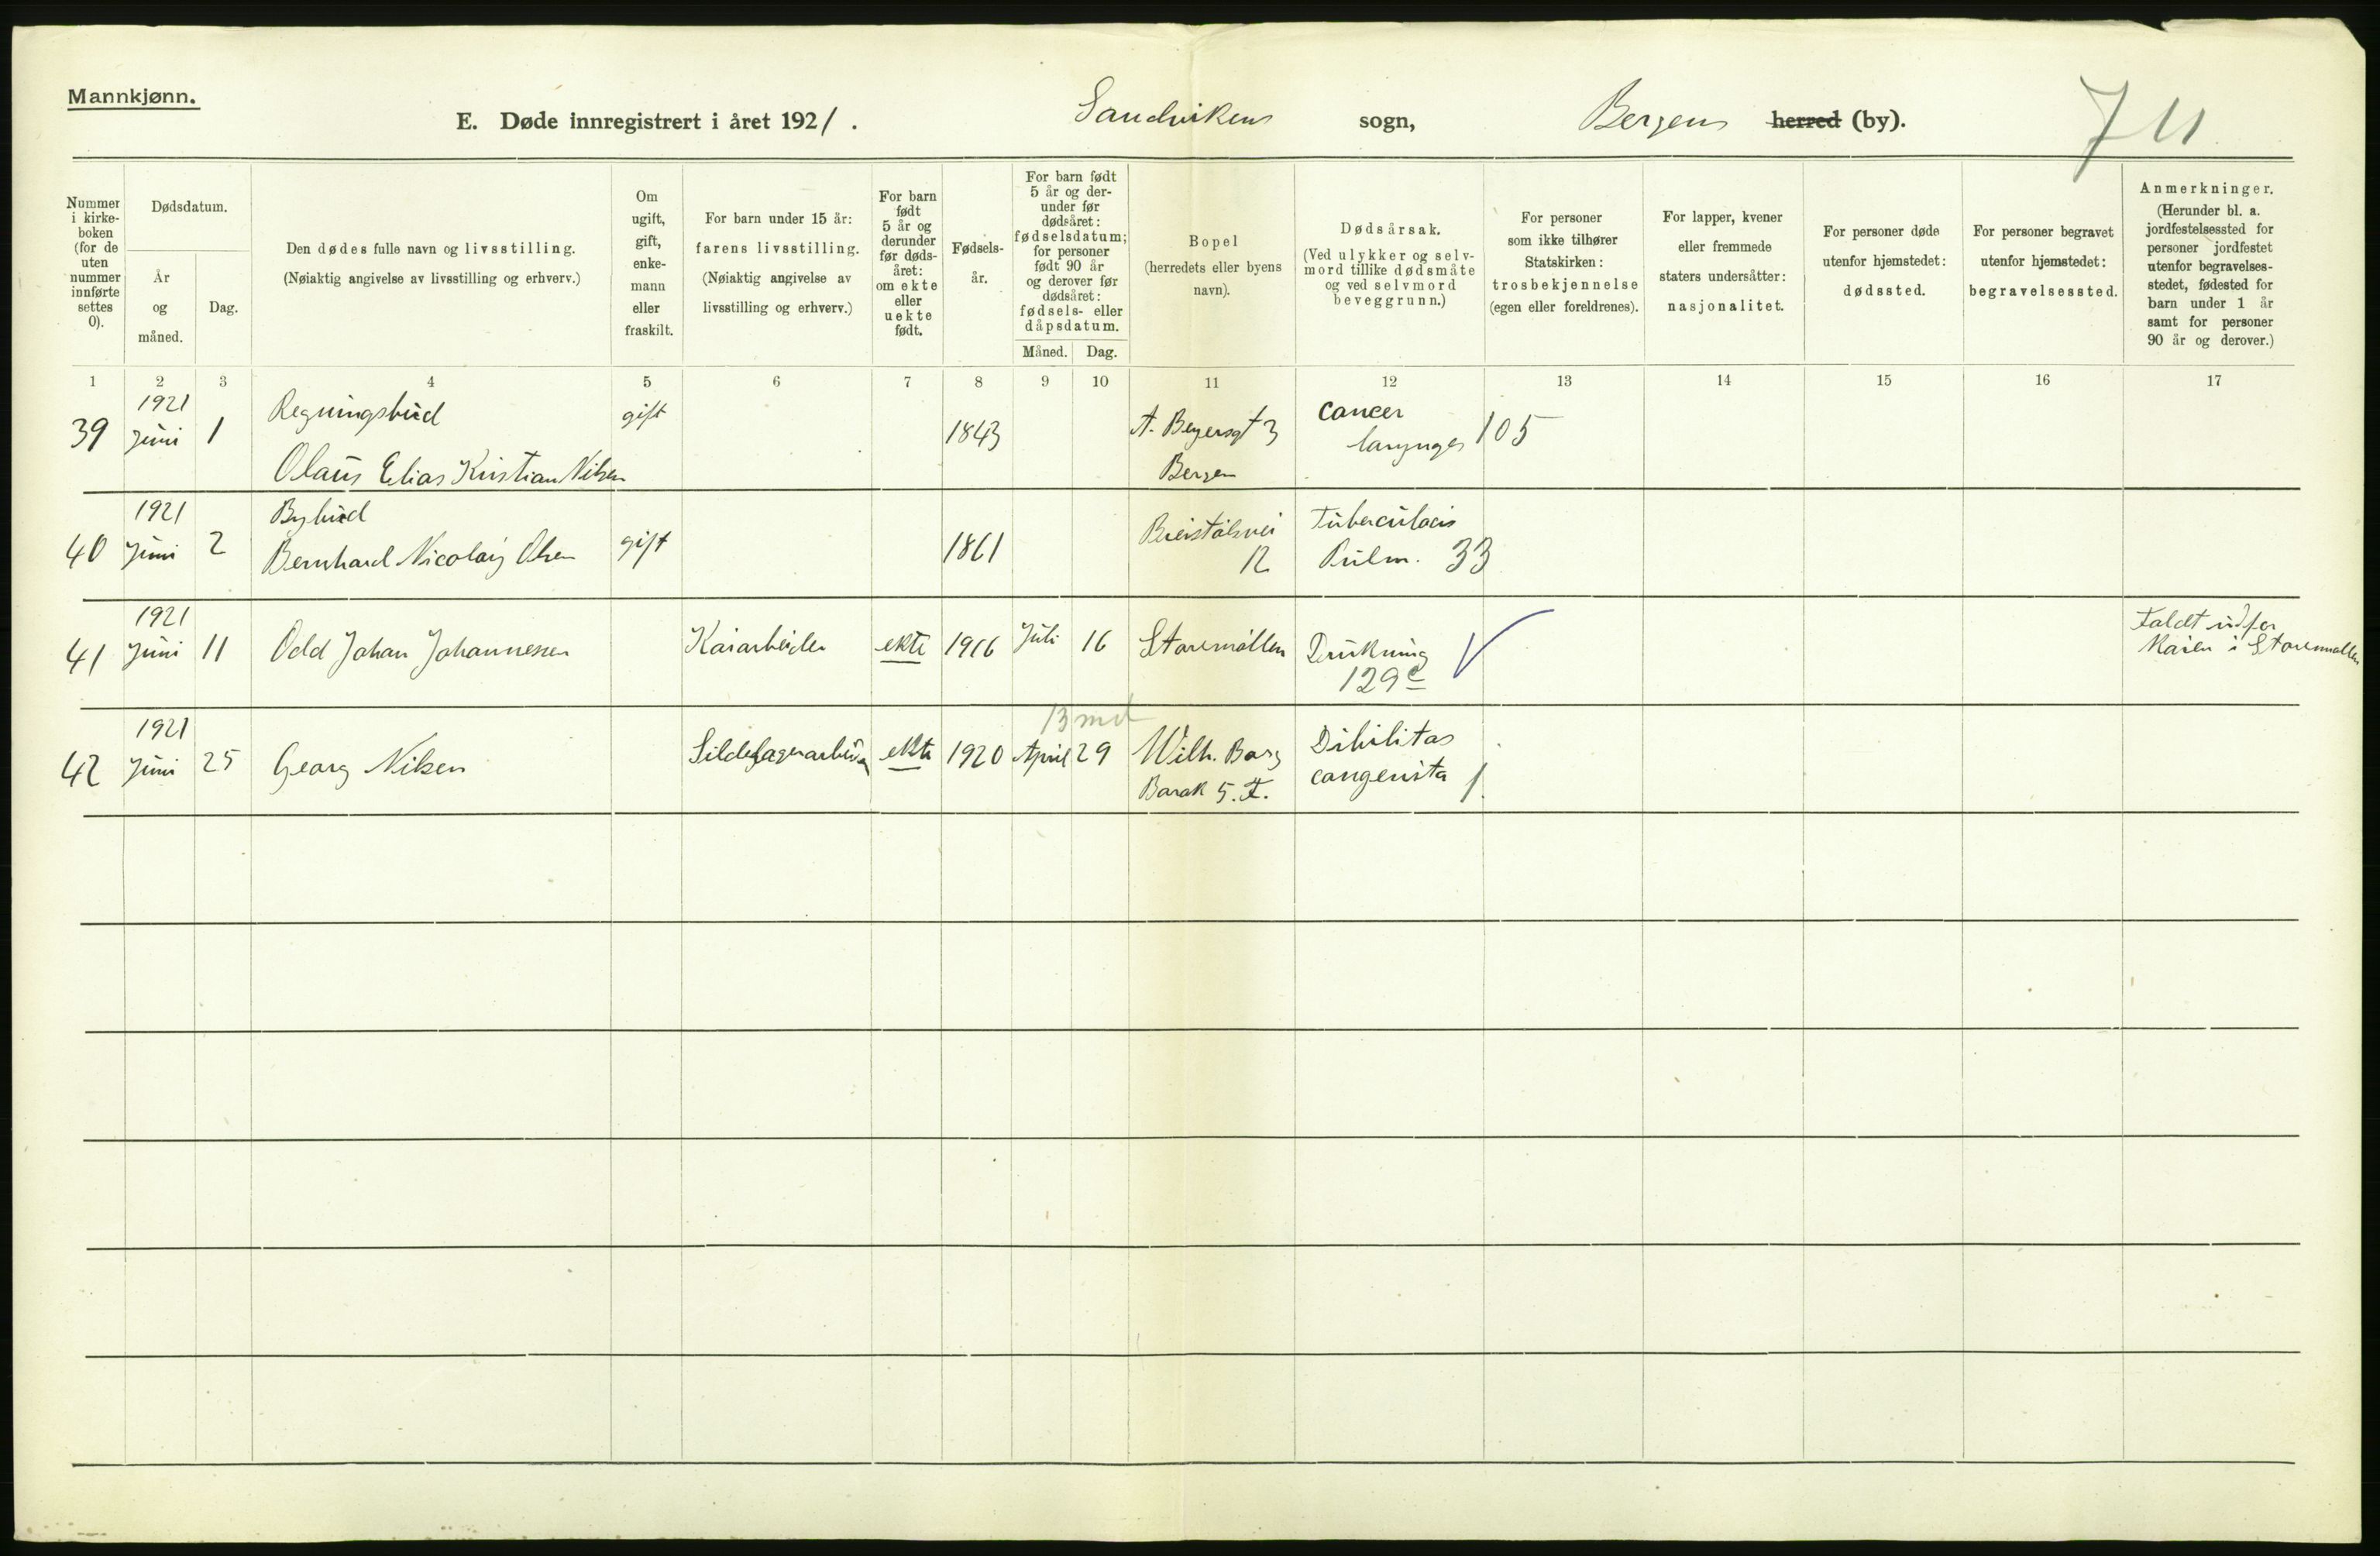 Mannkjønn.
E. Døde innregistrert i året 1921. Sandvikens sogn, Bergens herred (by). 711
Nummer i kirke-boken (for de uten nummer innførte settes 0).
Dødsdatum.
År og måned.
Dag.
Den dødes fulle navn og livsstilling.
(Nøiaktig angivelse av livsstilling og erhverv.)
Om ugift, gift, enke-mann eller fraskilt.
For barn under 15 år:
farens livsstilling.
(Nøiaktig angivelse av
livsstilling og erhverv.)
For barn født 5 år og derunder før døds-året: om ekte eller uekte født.
Fødsels-år.
For barn født 5 år og der-under før dødsåret: fødselsdatum; for personer født 90 år og derover før dødsåret: fødsels- eller dåpsdatum.
Måned.
Dag.
Bopel
(herredets eller byens
navn).
Dødsårsak.
(Ved ulykker og selv-
mord tillike dødsmåte
og ved selvmord
beveggrunn.)
For personer
som ikke tilhører
Statskirken:
trosbekjennelse
(egen eller foreldrenes).
For lapper, kvener
eller fremmede
staters undersåtter:
nasjonalitet.
For personer døde
utenfor hjemstedet:
dødssted.
For personer begravet
utenfor hjemstedet:
begravelsessted.
Anmerkninger.
(Herunder bl. a.
jordfestelsessted for
personer jordfestet
utenfor begravelses-
stedet, fødested for
barn under 1 år
samt for personer
90 år og derover.)
1 2 3 4 5 6 7 8 9 10 11 12 13 14 15 16 17
1921 Regningsbud gift cancer
39 juni 1 1843 A. Beyersgt 3 larynges 105
Olaus Elias Kristian Nilsen Bergen
1921 Bybud Tuberculosis
40 juni 2 Bernhard Nicolaij Olsen gift 1861 12 Pulm. 33
1921 Faldt ud for
41 juni 11 Odd Johan Johannessen Kaiarbeider ekte 1916 Juli 16 Storemøllen Drukning V Kaien i Storemøllen
129 c
13 md
1921 Dibilitas
42 juni 25 Georg Nilsen Sildelagerarbeider ekte 1920 April 29 Wilh. Barg congenita 1
Barak 5. I.